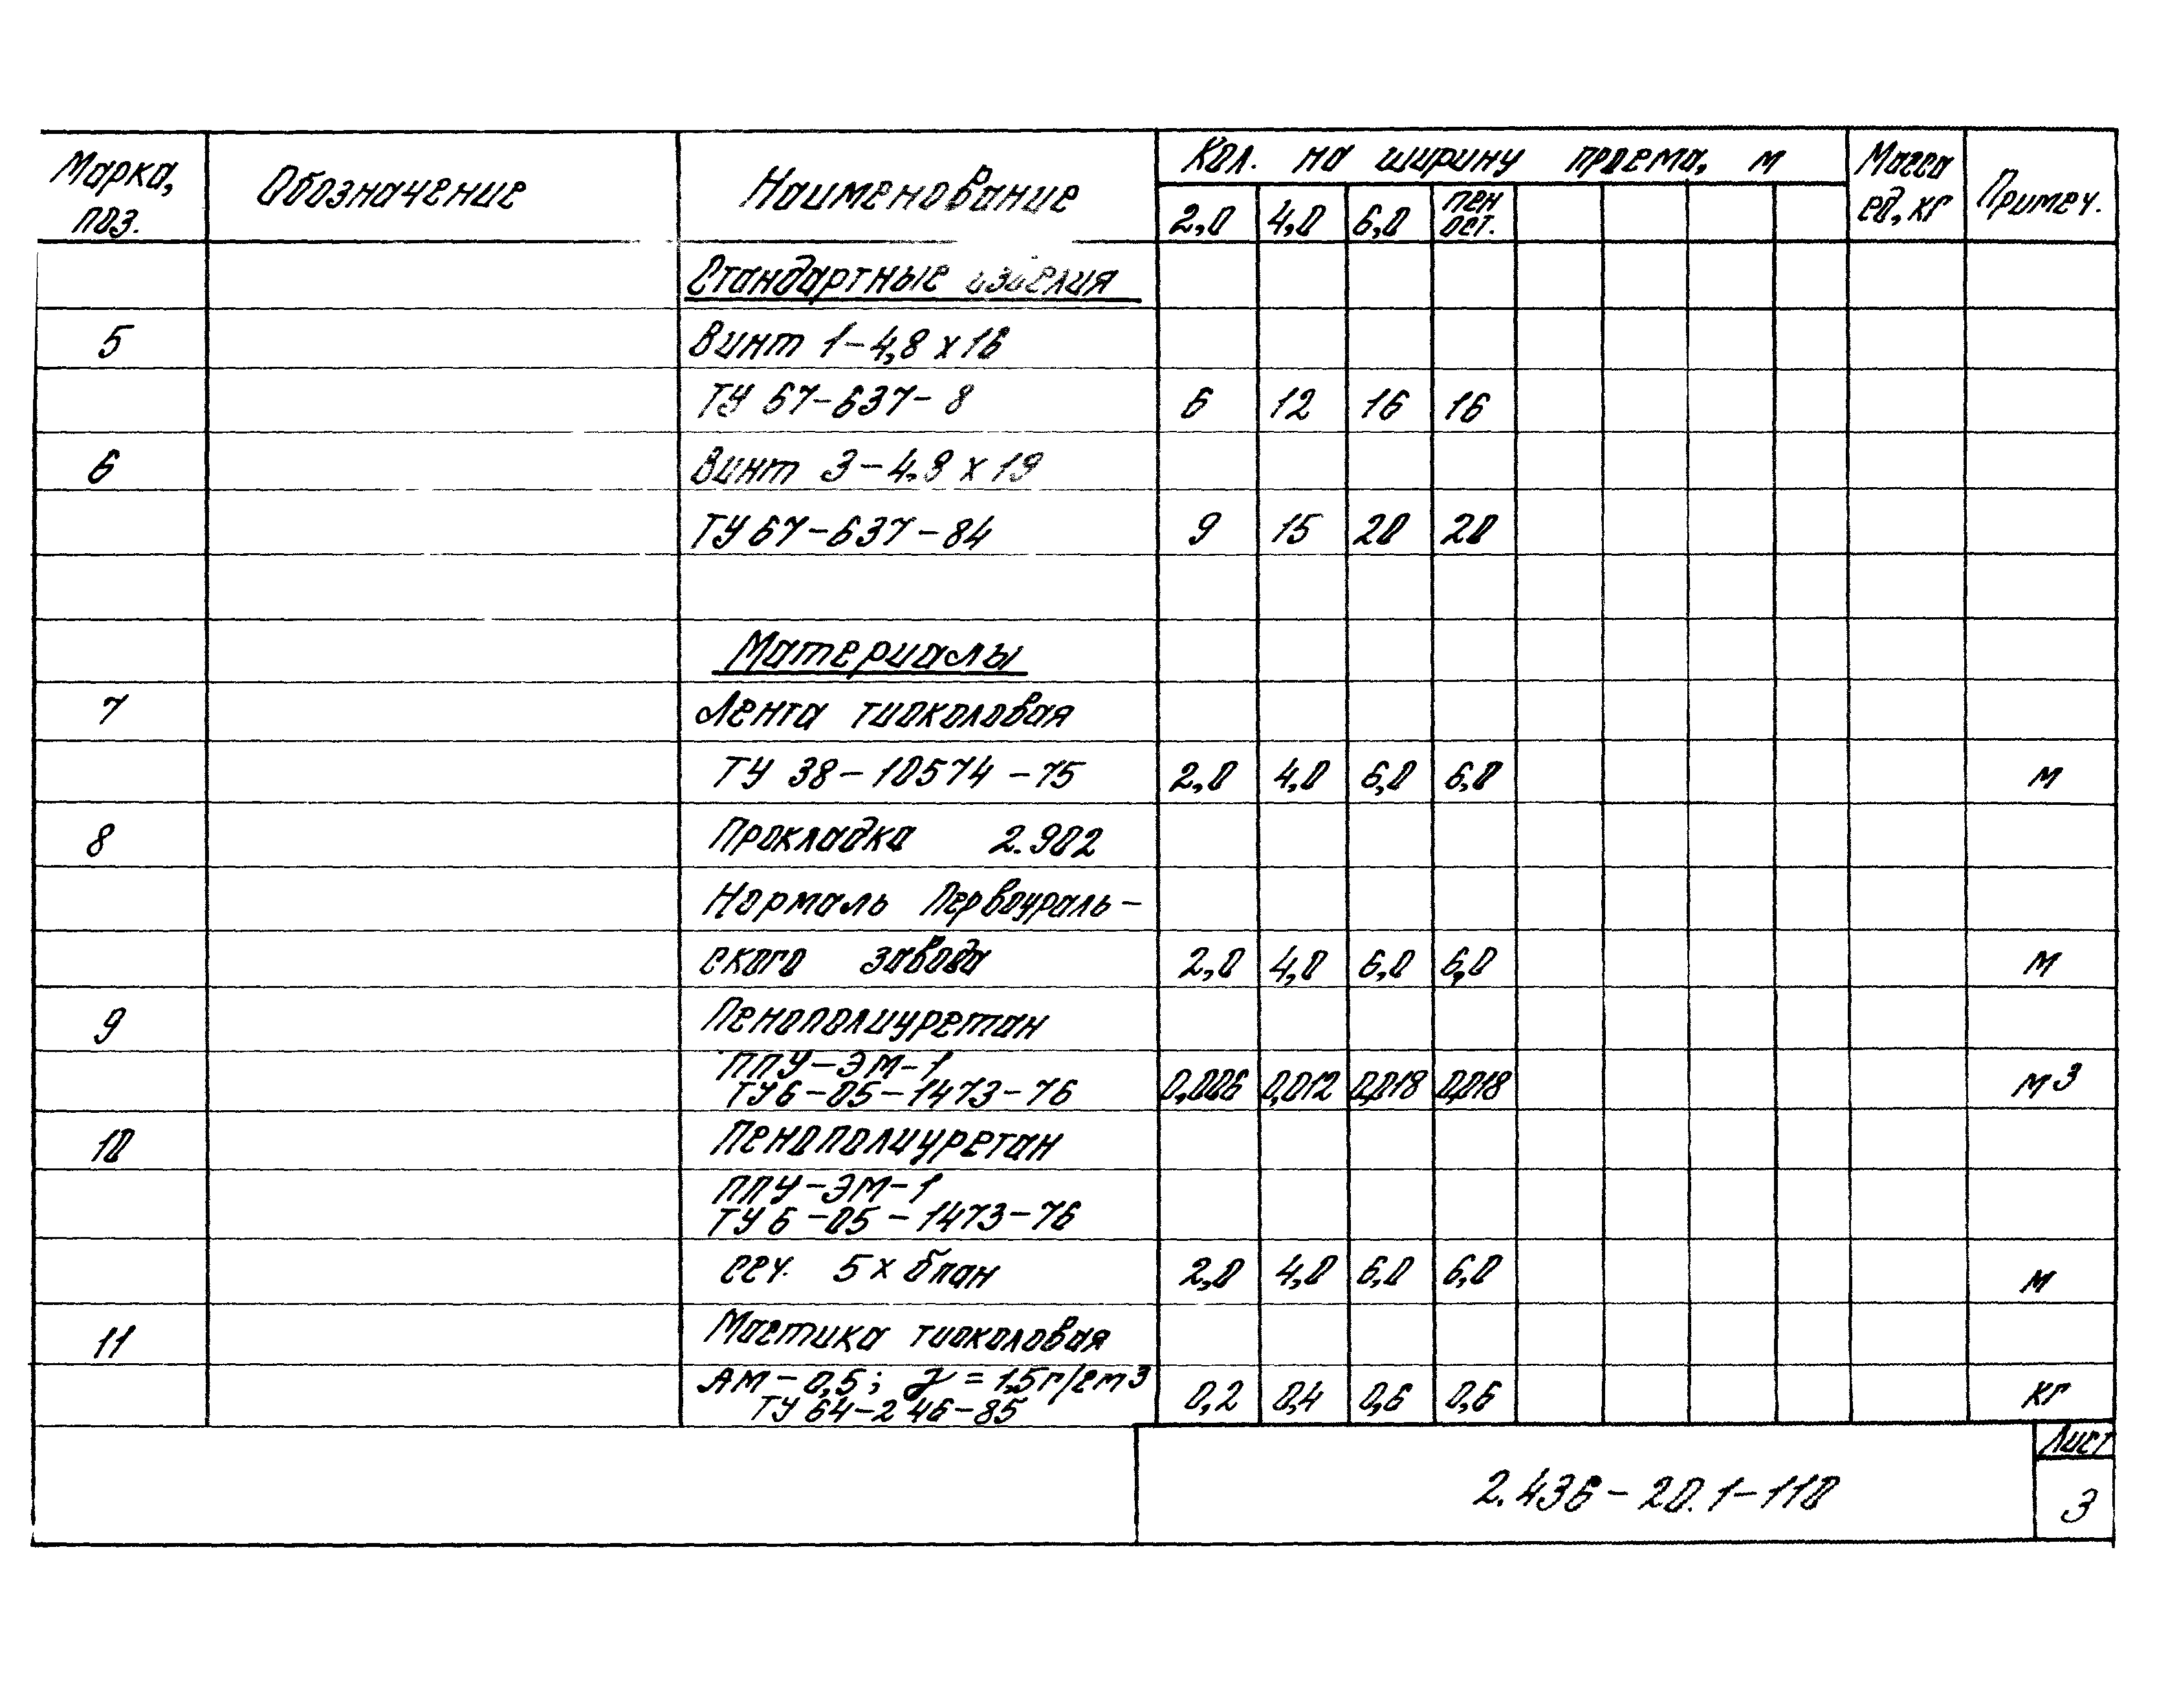 Марка, поз.
Обозначение
Наименование
Кол. на ширину проема, м
2,0 4,0 6,0 лен ост.
Масса ед, кг
Примеч.
Стандартные изделия
5 Винт 1-4,8 х 16
ТУ 67-637-8 6 12 16 16
6 Винт 3-4,8 х 19
ТУ 67-637-84 9 15 20 20
Материалы
7 Лента тиоколовая
ТУ 38-10574-75 2,0 4,0 6,0 6,0 м
8 Прокладка 2.902
Нормаль Первоураль-
ского завода 2,0 4,0 6,0 6,0 м
9 Пенополиуретан
ППУ-ЭМ-1
ТУ 6-05-1473-76 0,006 0,012 0,018 0,018 м3
10 Пенополиуретан
ППУ-ЭМ-1
ТУ 6-05-1473-76
сеч. 5 х бпан 2,0 4,0 6,0 6,0 м
11 Мастика тиоколовая
АМ-0,5; γ = 1,5 г/см3
ТУ 64-246-85 0,2 0,4 0,6 0,6 кг
2.436-20.1-110
Лист
3